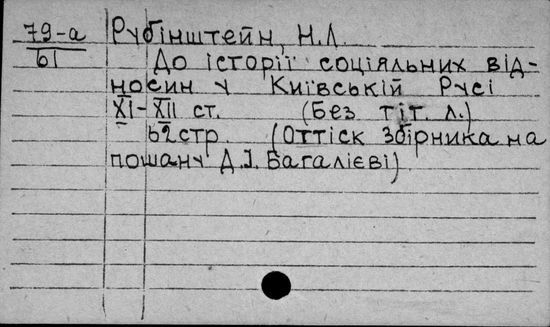 79-а Рубінштейн, Н.Л.
61 До історії соціяльних від-
носин у Київській Русі
XI-XII ст. (Без тіт. л.)
62стр (Оттіск Збірника на
пошану Д.І. Багалієві)